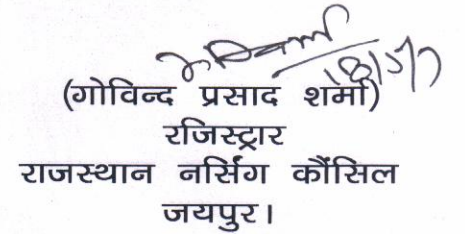 (गोविन्द प्रसाद शर्मा)
रजिस्ट्रार
राजस्थान नर्सिंग कौंसिल
जयपुर।